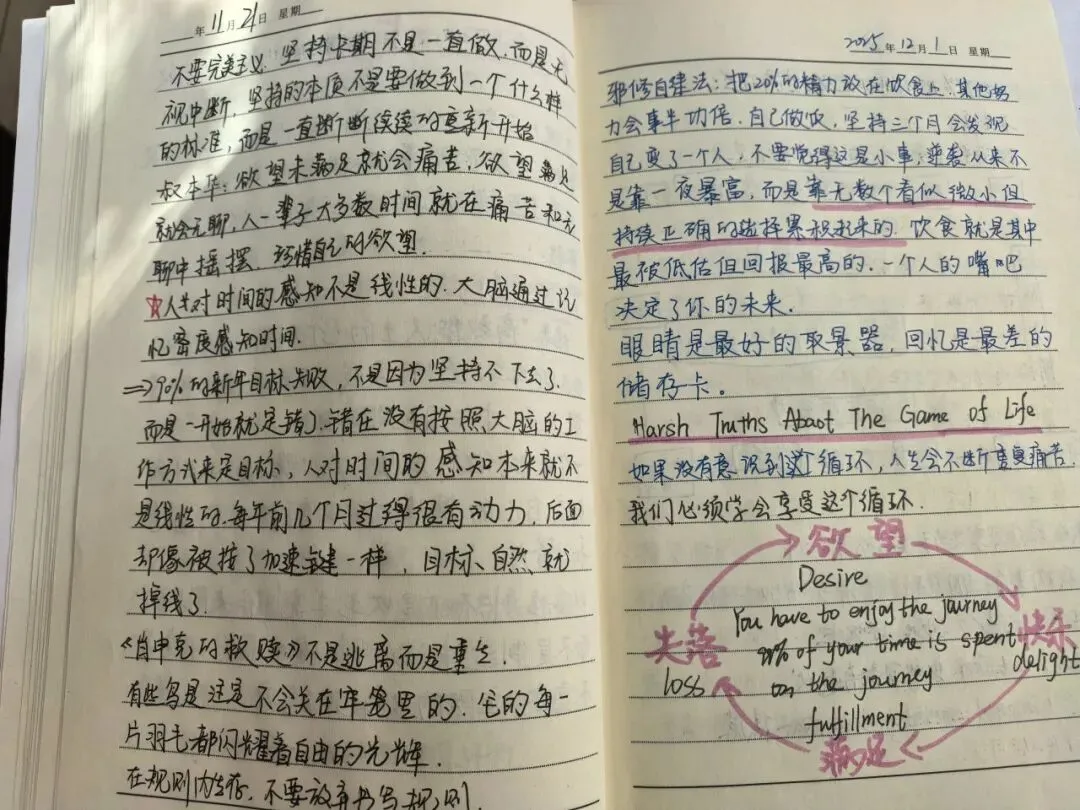 年 11 月 21 日 星期
不要完美主义 坚持长期不是一直做,而是无
视中断,坚持的本质不是要做到一个什么样
的标准,而是一直断断续续的重新开始
叔本华:欲望未满足就会痛苦,欲望满足
就会无聊,人一辈子大多数时间就在痛苦和无
聊中摇摆.珍惜自己的欲望.
☆人对时间的感知不是线性的.大脑通过记
忆密度感知时间.
⇒90%的新年目标失败,不是因为坚持不下去了.
而是一开始就定错了.错在没有按照大脑的工
作方式来定目标,人对时间的感知本来就不
是线性的.每年前几个月过得很有动力.后面
却像被按了加速键一样,目标、自然就
掉线了.
《肖申克的救赎》不是逃离而是重生.
有些鸟是注定不会关在牢笼里的.它的每一
片羽毛都闪耀着自由的光辉.
在规则内生存,不要放弃书写规则.
2025 年 12 月 1 日 星期
邪修自律法:把20%的精力放在饮食上.其他努
力会事半功倍.自己做饭,坚持三个月会发现
自己变了一个人,不要觉得这是小事,逆袭从来不
是靠一夜暴富,而是靠无数个看似微小但
持续正确的选择累积起来的.饮食就是其中
最被低估但回报最高的.一个人的嘴巴
决定了你的未来.
眼睛是最好的取景器,回忆是最差的
储存卡。
Harsh Truths About The Game of Life
如果没有意识到这个循环,人生会不断重复痛苦.
我们必须学会享受这个循环.
欲望
Desire
You have to enjoy the journey
失落
99% of your time is spent
快乐
loss
on the journey
delight
fulfillment
满足